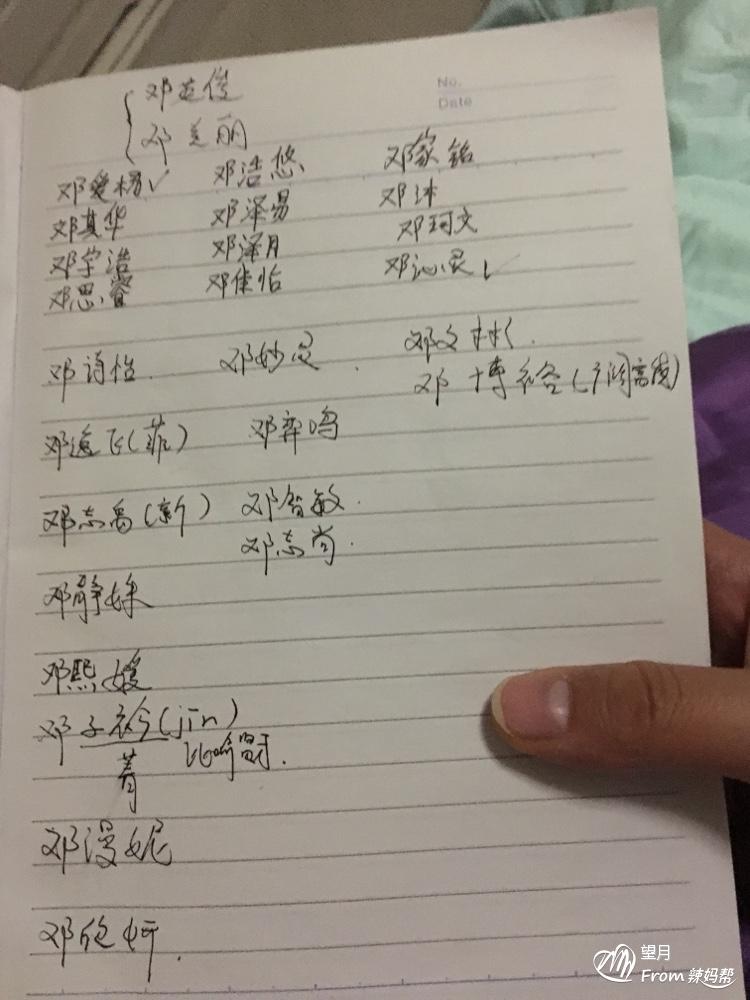 No.
Date
邓英俊
邓美丽
邓爱楠✓ 邓浩悠 邓家铭
邓其华 邓泽易 邓沐
邓宇浩 邓泽月 邓珂文
邓思睿 邓佳怡 邓沁灵✓
邓诗怡. 邓妙灵. 邓文彬.
邓博裕(广阔高茂)
邓逸飞(菲) 邓弈鸣
邓志禹(新) 邓智敏.
邓志尚.
邓静姝
邓熙媛
邓子衿(jīn)
菁 比喻贤才.
邓漫妮
邓欣妍.
望月
From 辣妈帮